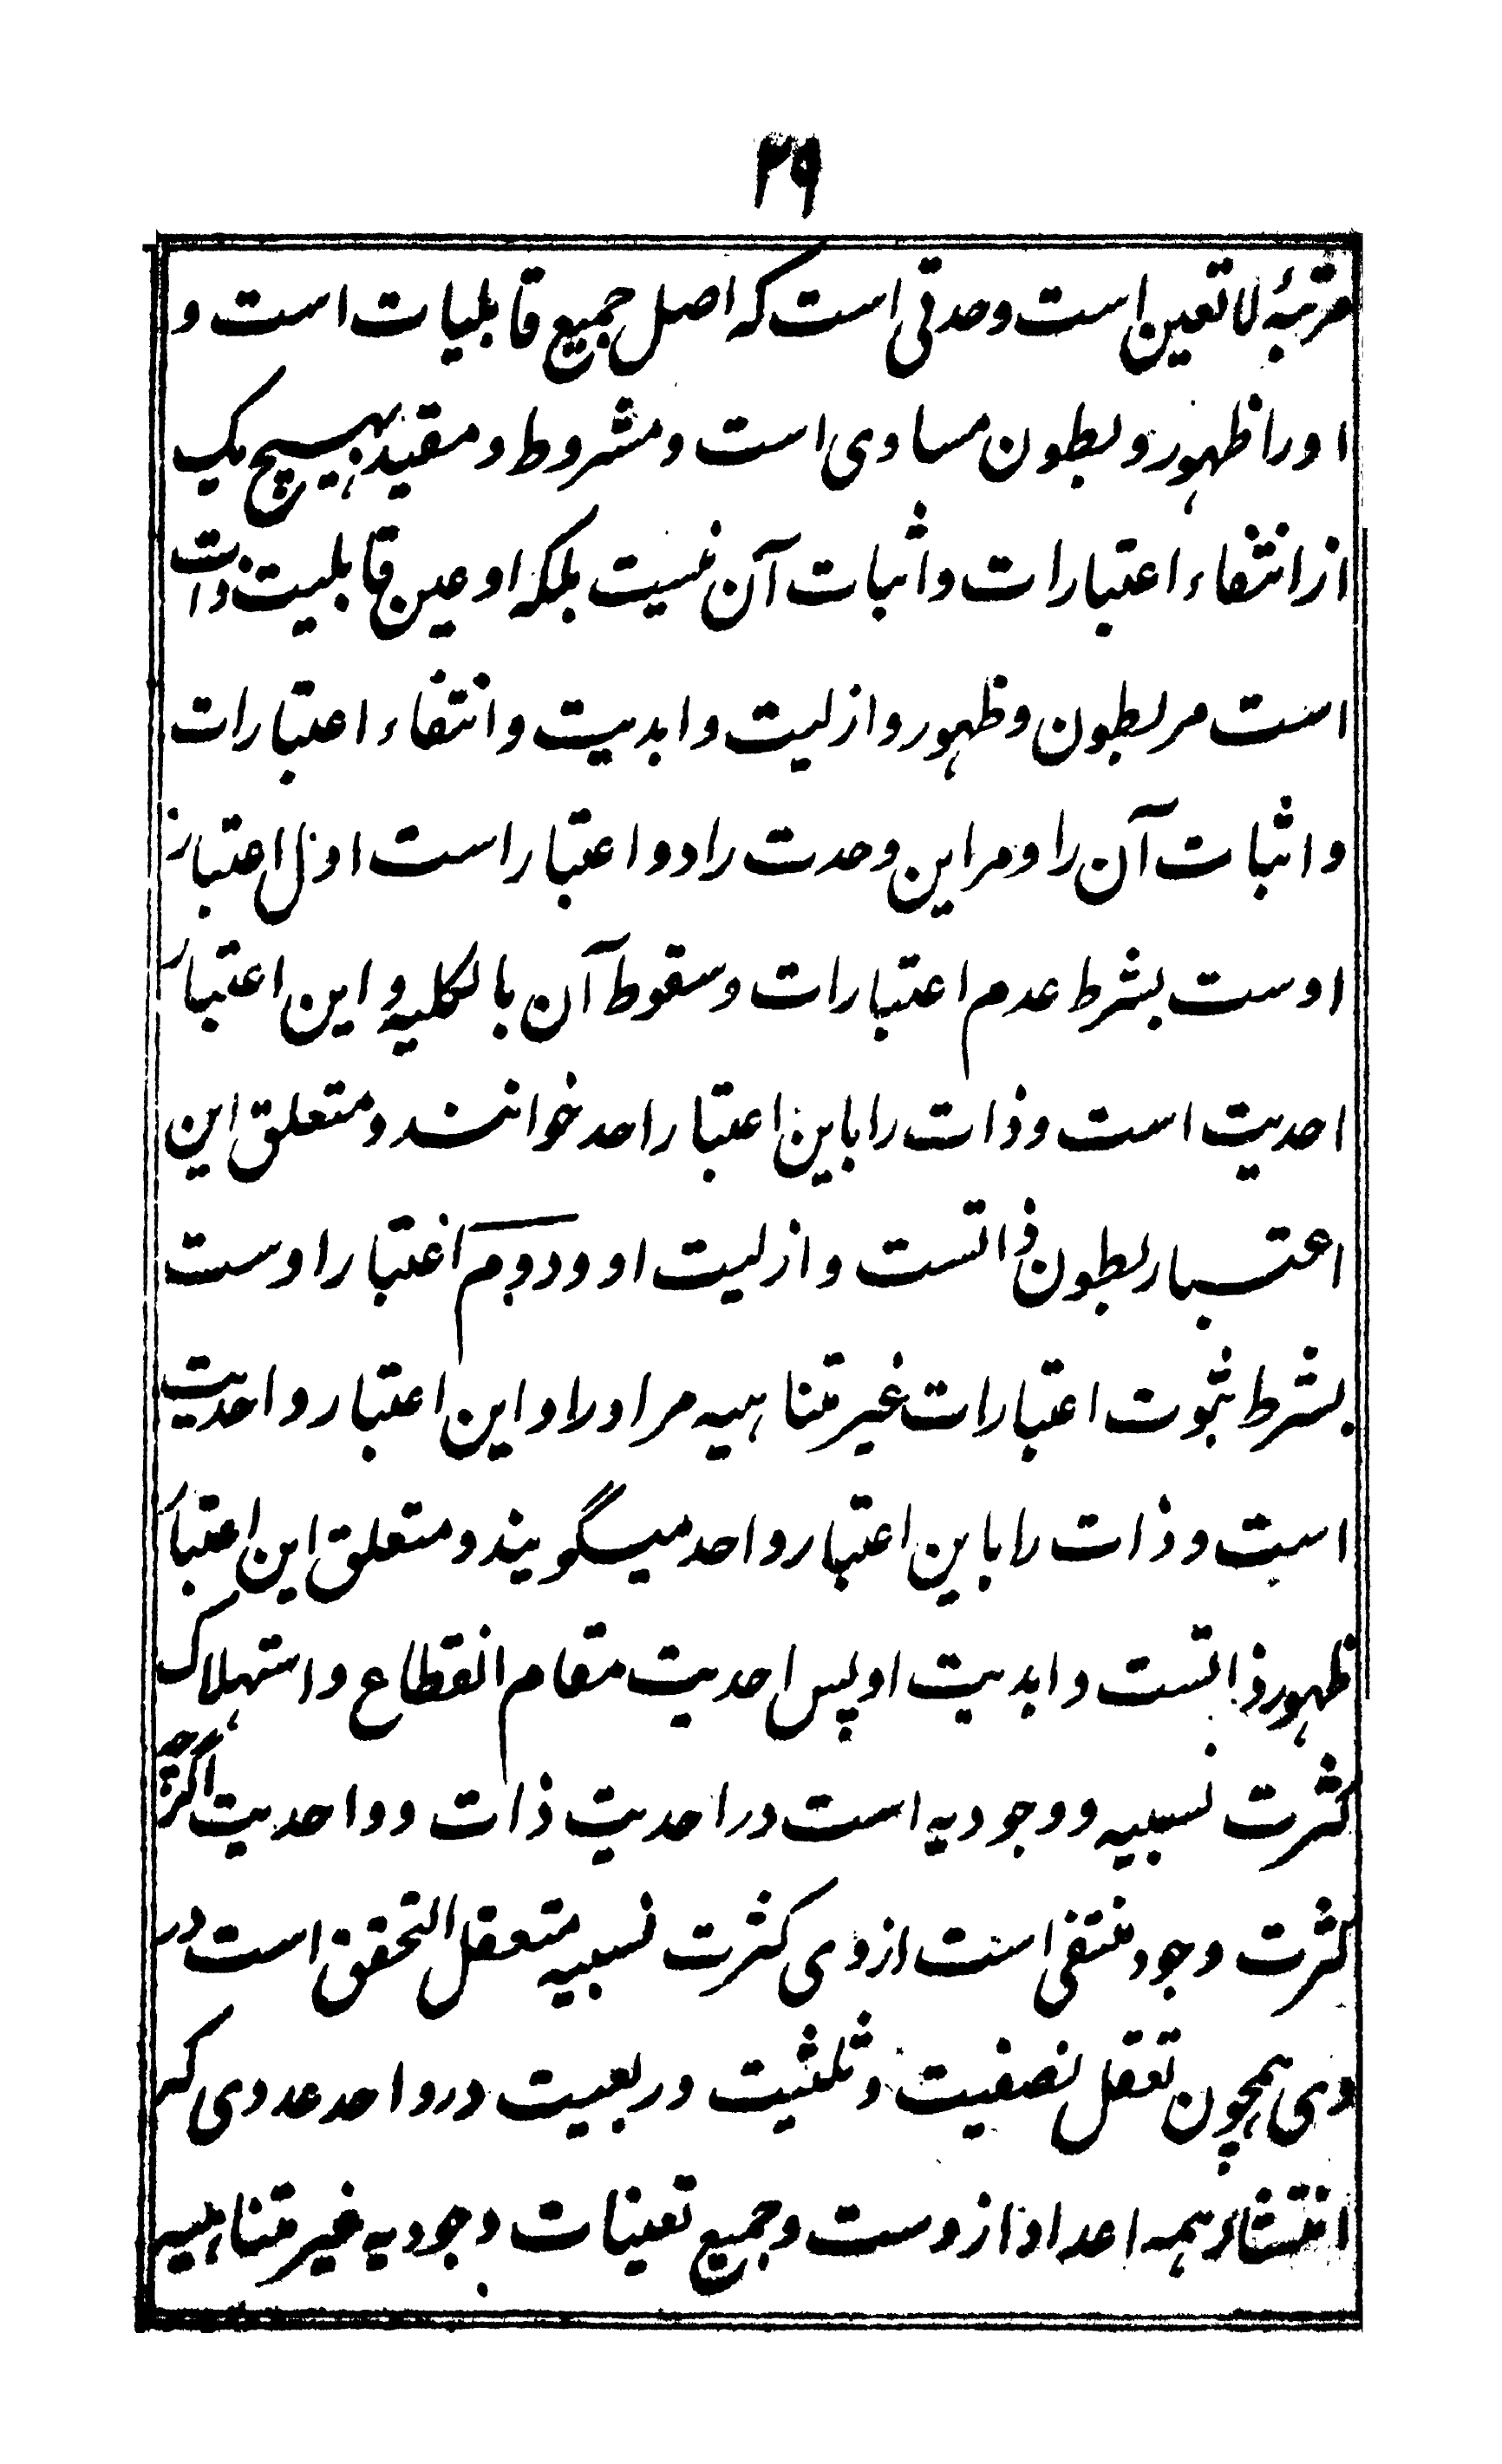 ۲۹
مرتبۂ لا تعین است وحدتی است که اصل جمیع قابلیات است و
او را ظهور و بطون مساوی است و مشروط و مقید بهیچ یک
از انتفاء اعتبارات و اثبات آن نیست بلکه او عین قابلیت ذات
است مر بطون و ظهور و ازلیت و ابدیت و انتفاء اعتبارات
و اثبات آن را و مر این وحدت را دو اعتبار است اول اعتبار
اوست بشرط عدم اعتبارات و سقوط آن بالکلیه و این اعتبار
احدیت است و ذات را باین اعتبار احد خوانند و متعلق این
اعتبار بطون ذاتست و ازلیت او و دوم اعتبار اوست
بشرط ثبوت اعتبارات غیر متناهیه مر او را و این اعتبار واحدیت
است و ذات را باین اعتبار واحد میگویند و متعلق این اعتبار
ظهور ذاتست و ابدیت او پس احدیت مقام انقطاع و استهلاک
کثرت نسبیه و وجودیه است در احدیت ذات و واحدیت اگرچه
کثرت وجود منتفی است از وی کثرت نسبیه متعقل التحقق است در
وی همچون تعقل نصفیت و ثلثیت و ربعیت در واحد عددی که
انتشاء همه اعداد ازوست و جمیع تعینات وجودیه غیر متناهیه